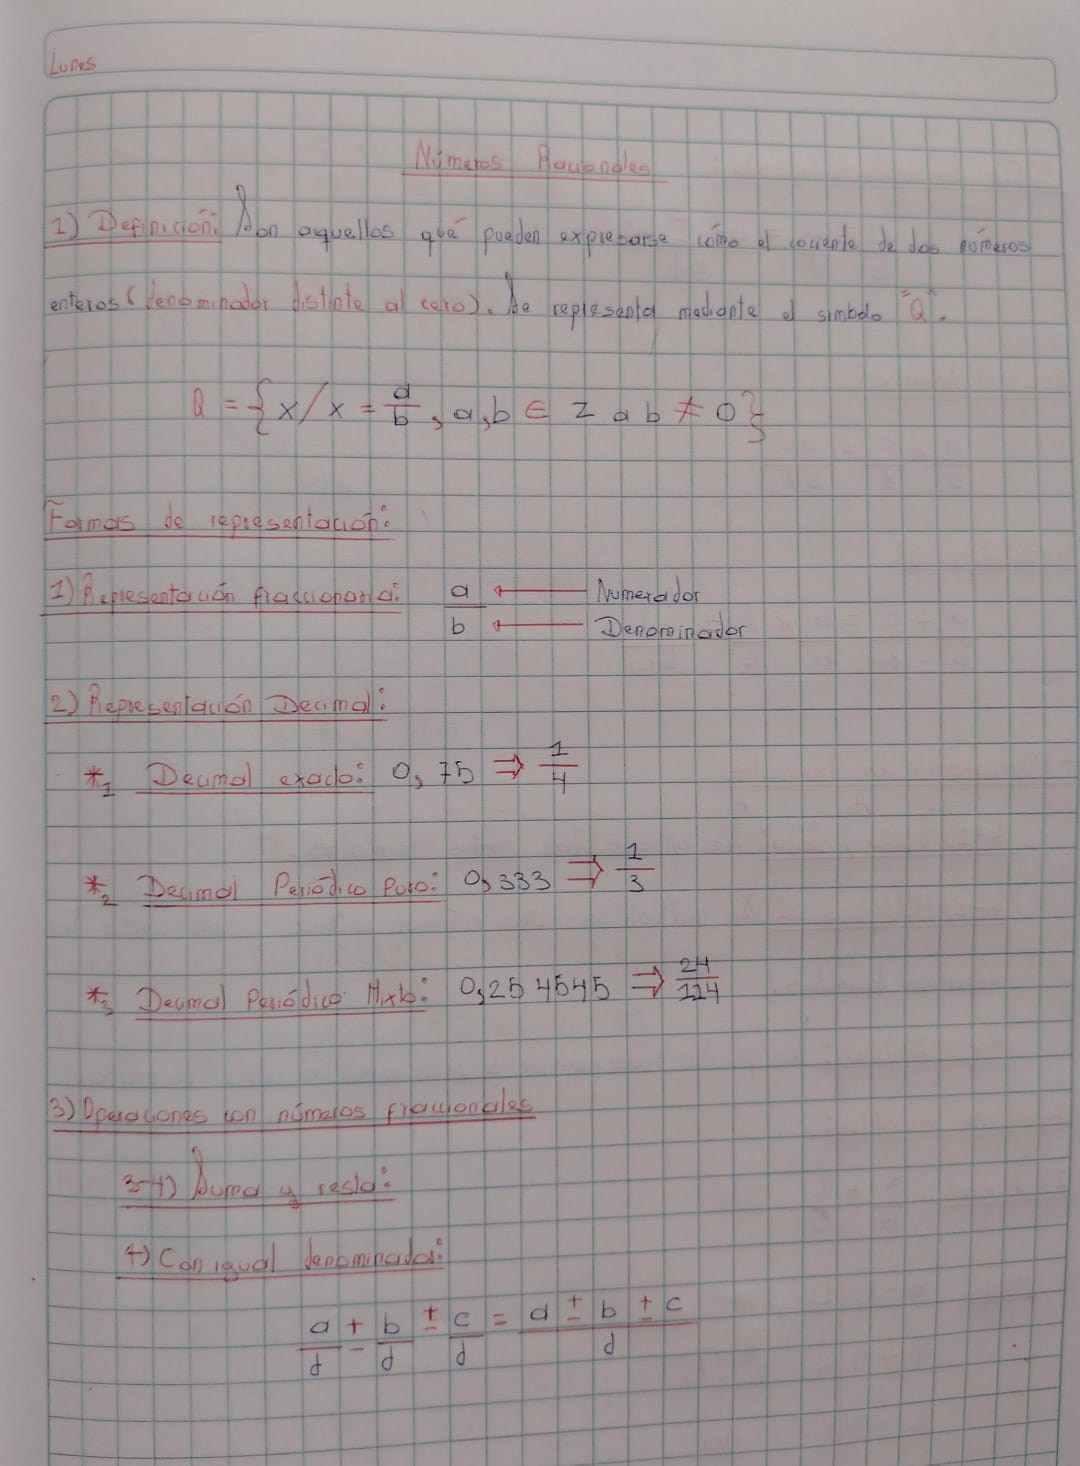 Lunes
Números Racionales
1) Definición: Son aquellos qué pueden expresarse como el cociente de dos números
enteros (denominador distinto al cero). Se representa mediante el simbolo "Q".
Q = {x/x = a/b, a,b ∈ Z a b ≠ 0}
Formas de representación:
1) Representación fraccionaria: a ← Numerador
b ← Denominador
2) Representación Decimal:
*1 Decimal exacto: 0,75 ⇒ 1/4
*2 Decimal Periódico Puro: 0,333 ⇒ 1/3
*3 Decimal Periódico Mixto: 0,254545 ⇒ 24/114
3) Operaciones con números fraccionales
3-4) Suma y resta:
4) Con igual denominador:
a/d ± b/d ± c/d = a ± b ± c / d